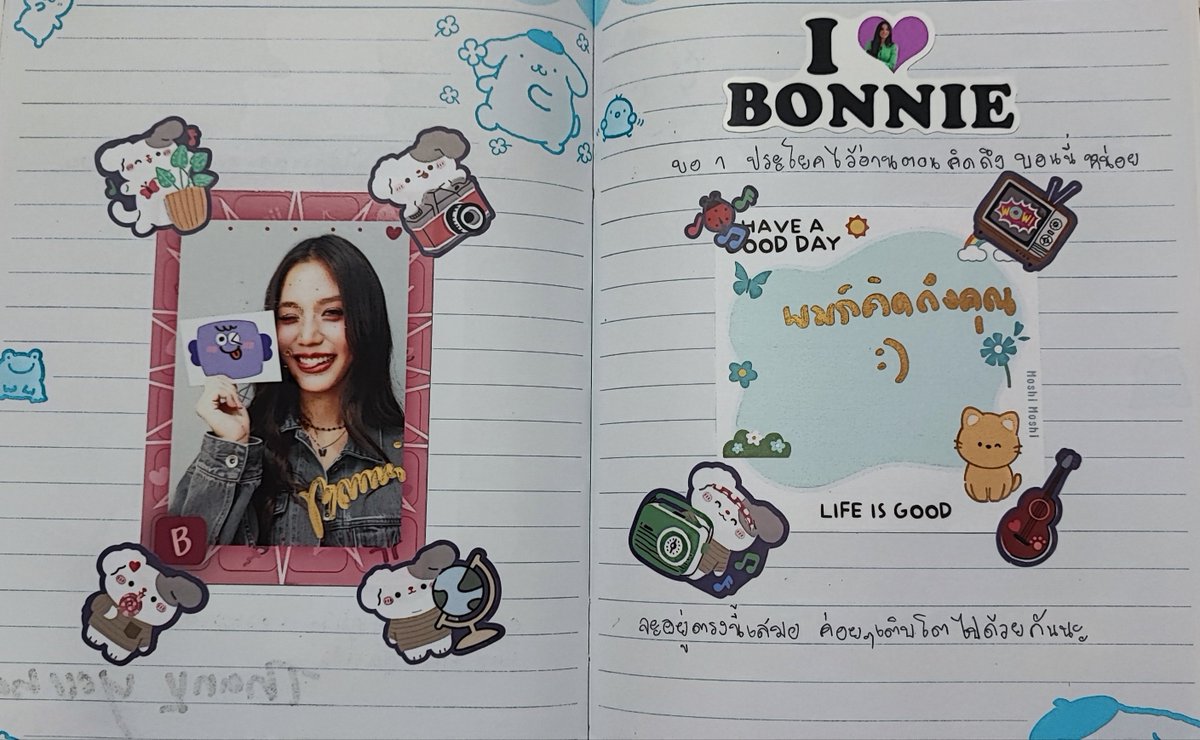 B
I
BONNIE
ขอ 1 ประโยคไว้อ่านตอนคิดถึง บอนนี่ หน่อย
HAVE A
OOD DAY
WOW!
ผมก็คิดถึงคุณ
:)
Moshi Moshi
LIFE IS GOOD
จะอยู่ตรงนี้เสมอ ค่อยๆเติบโตไปด้วยกันนะ